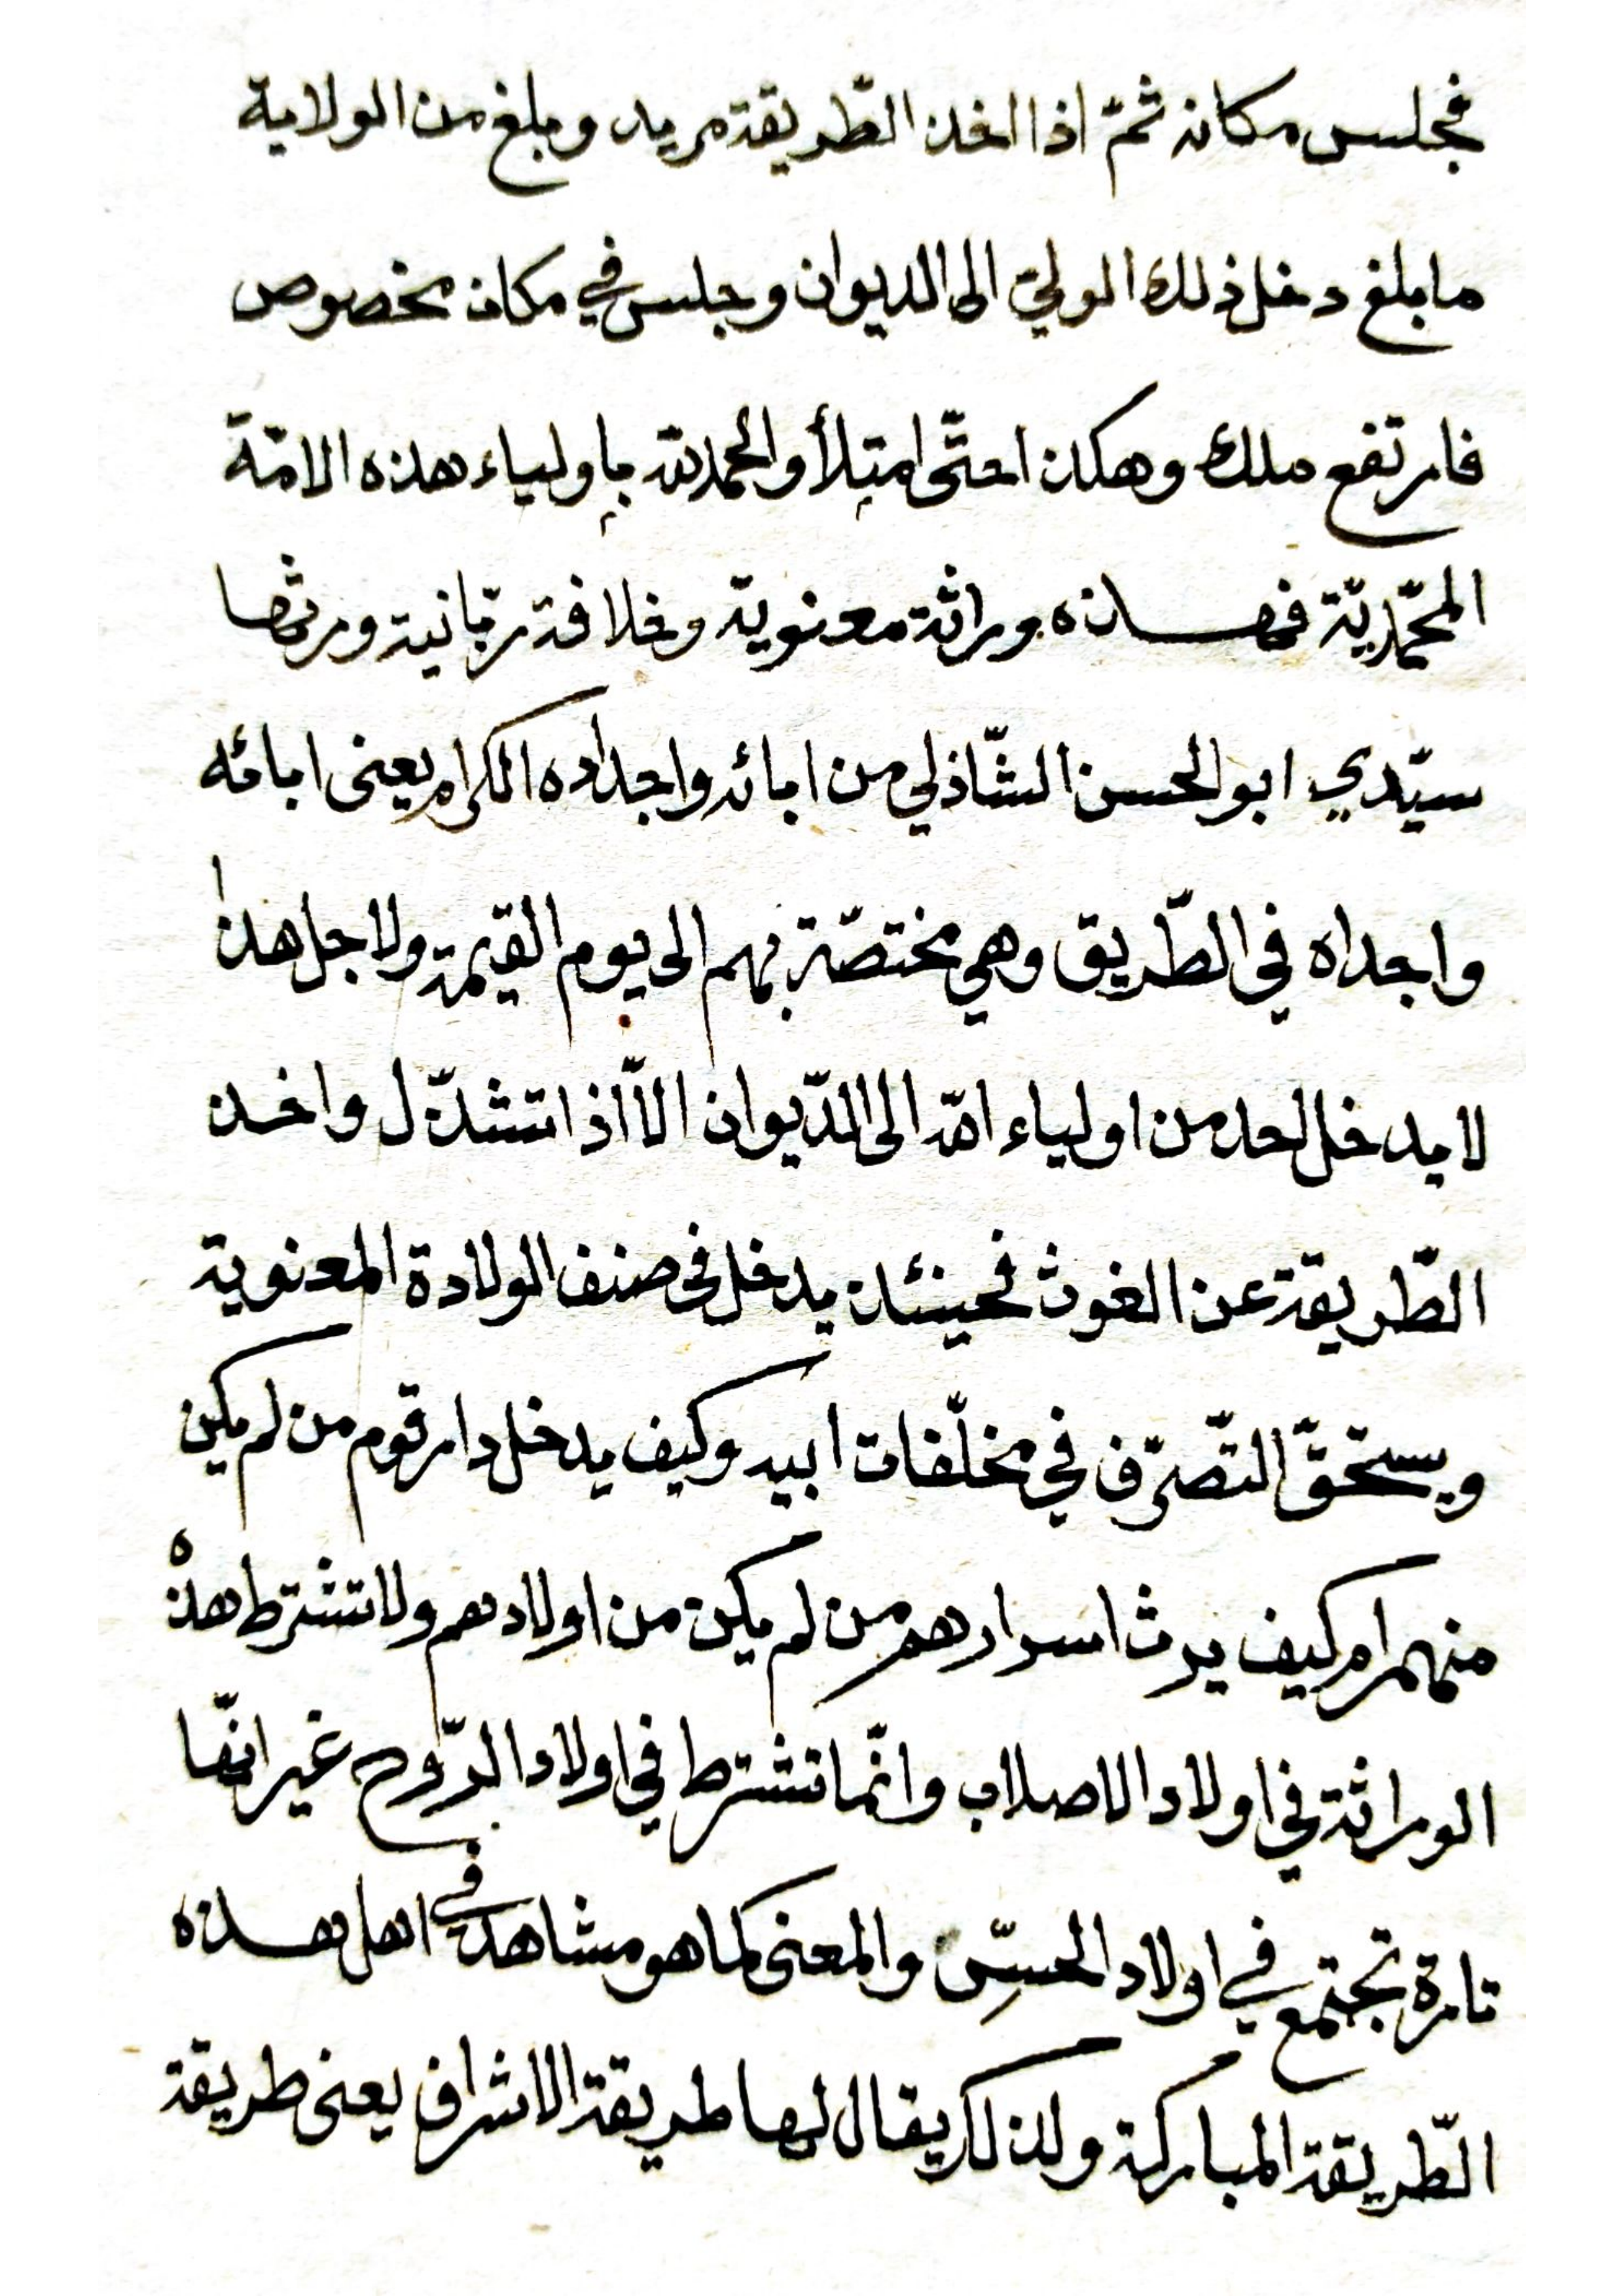 فجلس مكانه ثمّ اذا اخذ الطّريقة مريد وبلغ من الولاية
ما بلغ دخل ذلك الوليّ الى الديوان وجلس في مكان مخصوص
فارتفع ملك وهكذا حتّى امتلأ والحمد لله بأولياء هذه الامّة
المحمّديّة فهذه وراثة معنوية وخلافة ربّانية ورثها
سيّدي ابو الحسن الشّاذلي من ابائه واجداده الكرام يعنى ابائه
واجداه في الطّريق وهي مختصّة بهم الى يوم القيمة ولاجل هذا
لا يدخل احد من اولياء الله الى الدّيوان الاّ اذا تشذّل واخذ
الطّريقة عن الغوث فحينئذ يدخل فى صنف الولادة المعنوية
ويستحقّ التّصرّف في مخلّفات ابيه وكيف يدخل دار قوم من لم يكن
منهم ام كيف يرث اسرارهم من لم يكن من اولادهم ولا تشترط هذه
الوراثة في اولاد الاصلاب وانّما تشترط في اولاد الرّوح غير انّها
تارة تجتمع في اولاد الحسّ والمعنى كما هو مشاهد في اهل هذه
الطّريقة المباركة ولذلك يقال لها طريقة الاشراف يعنى طريقة